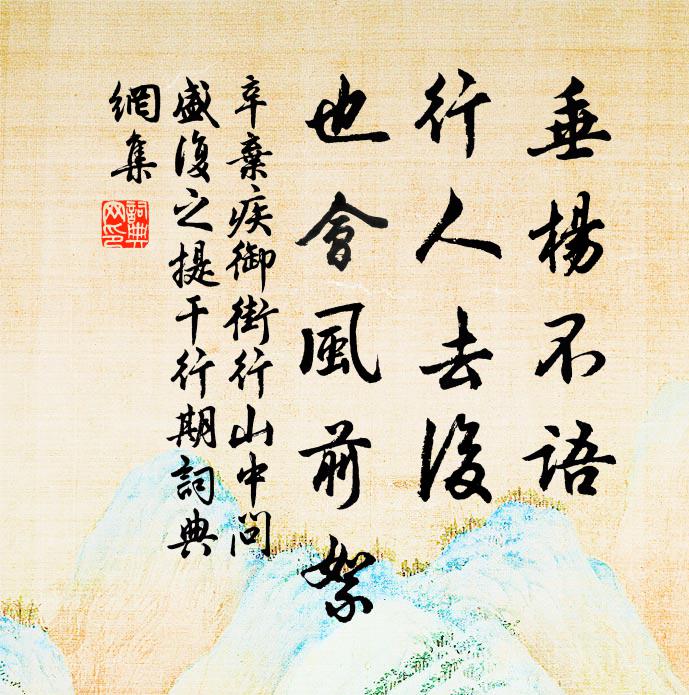 垂楊不語
行人去後
也會風前絮
辛棄疾御街行山中問
盛復之提干行期詞典
網集
詞典
网印